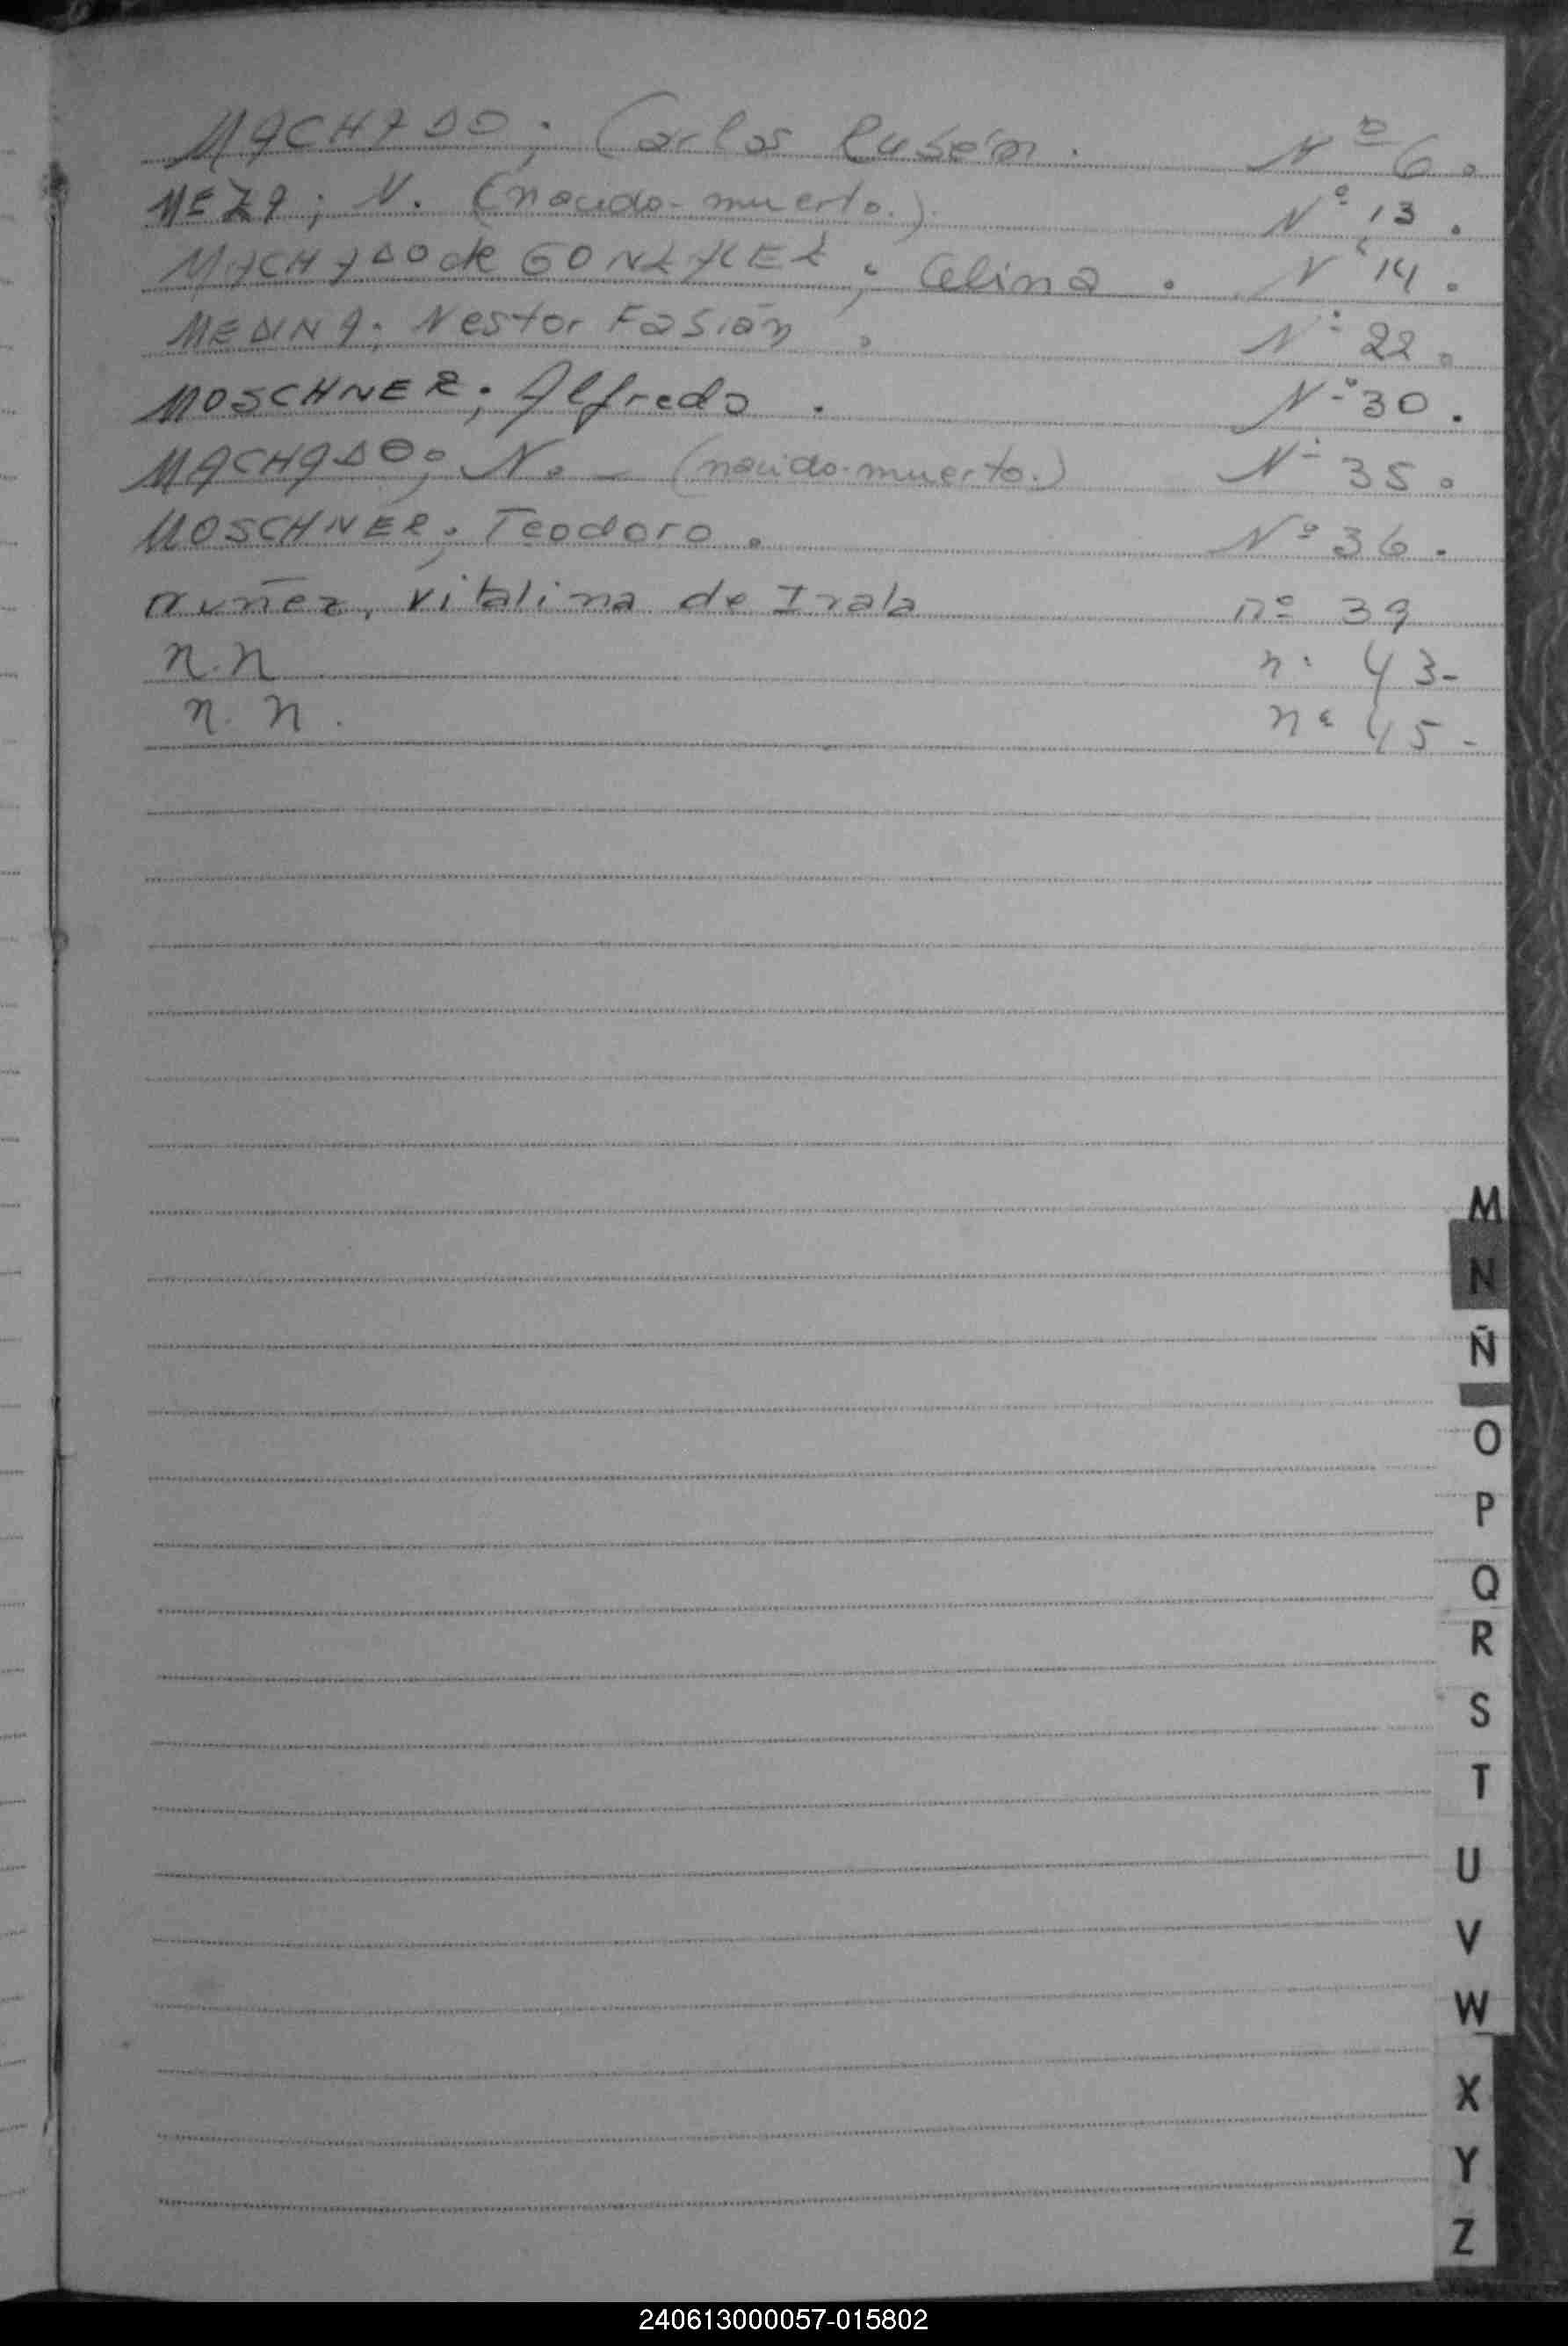 MACHADO; Carlos Rubén. Nº 6.
MEZA; N. (nacido-muerto.). Nº 13.
MACHADO de GONZALEZ; Celina. Nº 14.
MEDINA; Nestor Fabián. Nº 22.
MOSCHNER; Alfredo. Nº 30.
MACHADO; N. – (nacido-muerto.) Nº 35.
MOSCHNER; Teodoro. Nº 36.
nuñez, vitalina de Irala nº 39
n. n nº 43-
n. n. nº 45-
M
N
Ñ
O
P
Q
R
S
T
U
V
W
X
Y
Z
240613000057-015802